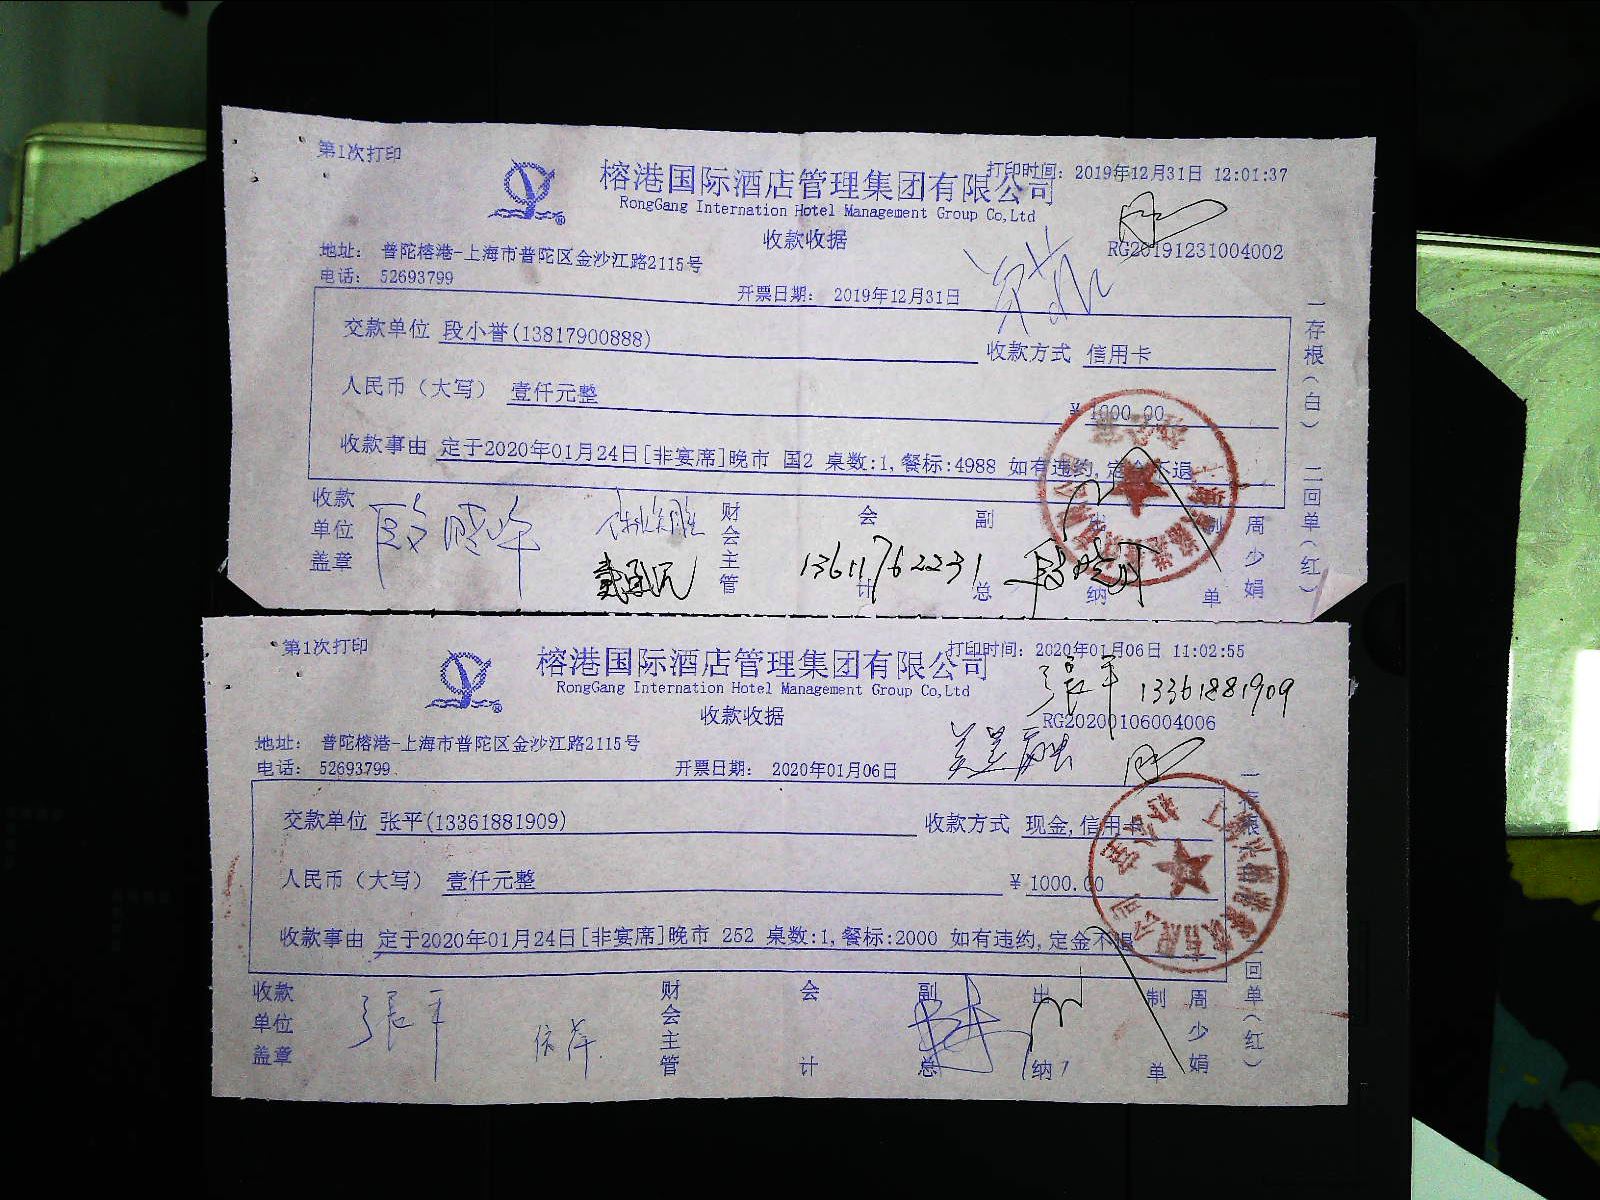 第1次打印
打印时间: 2019年12月31日 12:01:37
榕港国际酒店管理集团有限公司
RongGang Internation Hotel Management Group Co,Ltd
收款收据
RG20191231004002
地址: 普陀榕港-上海市普陀区金沙江路2115号
电话: 52693799
开票日期: 2019年12月31日
交款单位 段小誉(13817900888)
收款方式 信用卡
人民币（大写） 壹仟元整
¥ 1000.00
收款事由 定于2020年01月24日[非宴席]晚市 国2 桌数:1,餐标:4988 如有违约,定金不退
一存根(白) 二回单(红)
收款单位盖章
财会主管
会计
副总
出纳
制单
周少娟
13611762231
第1次打印
打印时间: 2020年01月06日 11:02:55
榕港国际酒店管理集团有限公司
RongGang Internation Hotel Management Group Co,Ltd
張平 13361881909
收款收据
RG20200106004006
地址: 普陀榕港-上海市普陀区金沙江路2115号
电话: 52693799
开票日期: 2020年01月06日
交款单位 张平(13361881909)
收款方式 现金,信用卡
人民币（大写） 壹仟元整
¥ 1000.00
收款事由 定于2020年01月24日[非宴席]晚市 252 桌数:1,餐标:2000 如有违约,定金不退
一存根 二回单(红)
收款单位盖章
張平
财会主管
会计
副总
出纳
制单
周少娟